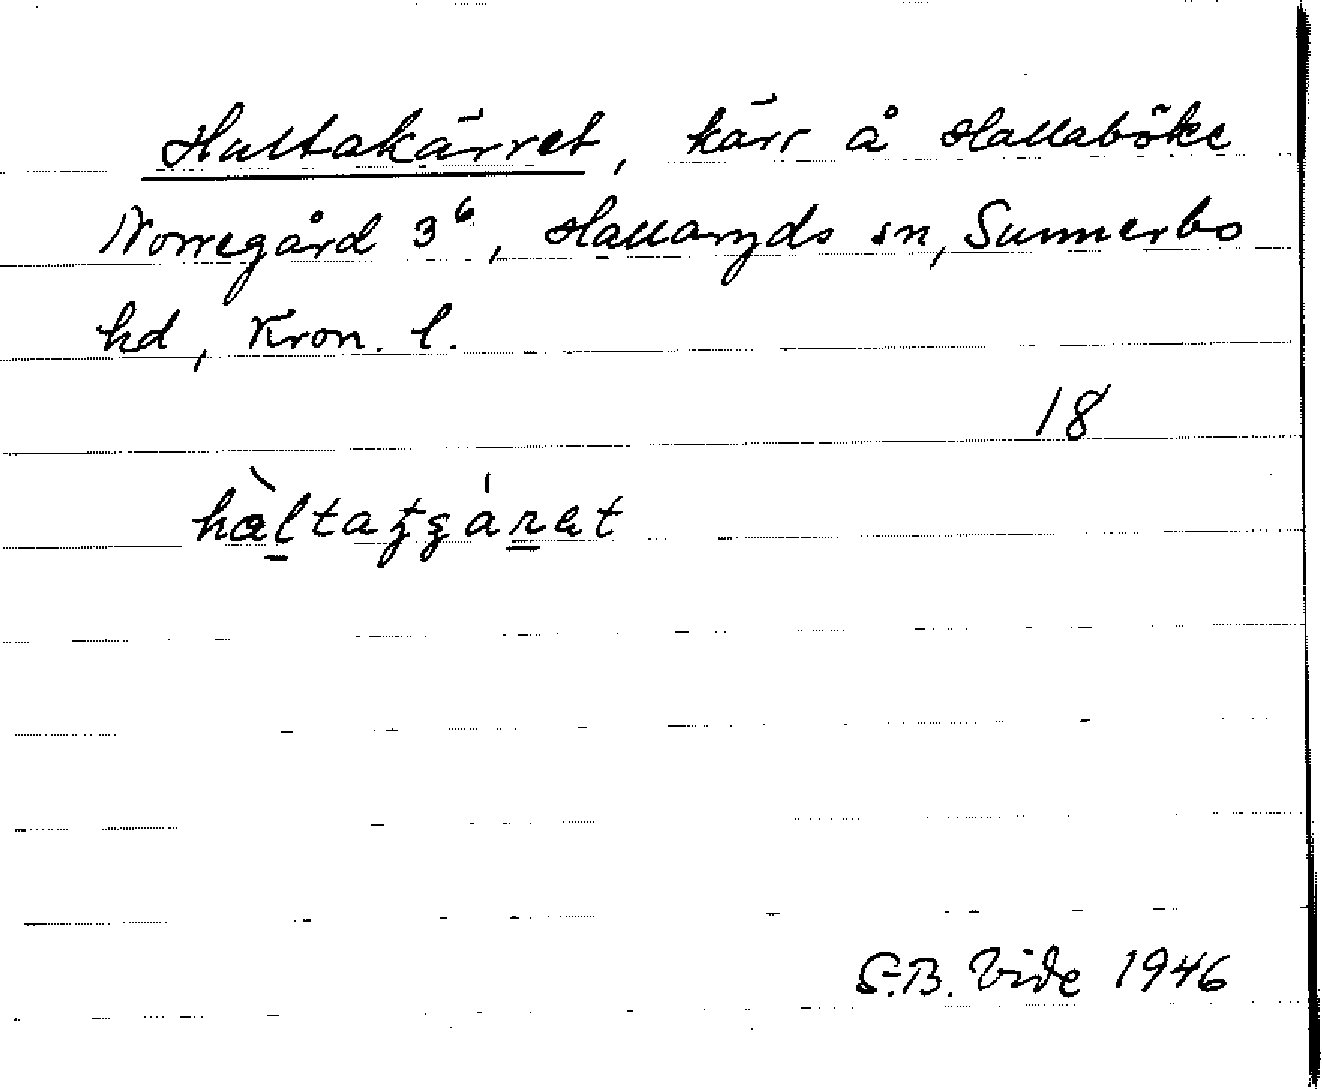 Hultakärret, kärr å Hallaböke
Norregård 3⁶, Hallaryds sn, Sunnerbo
hd, Kron. l.
18
S.B. Vide 1946